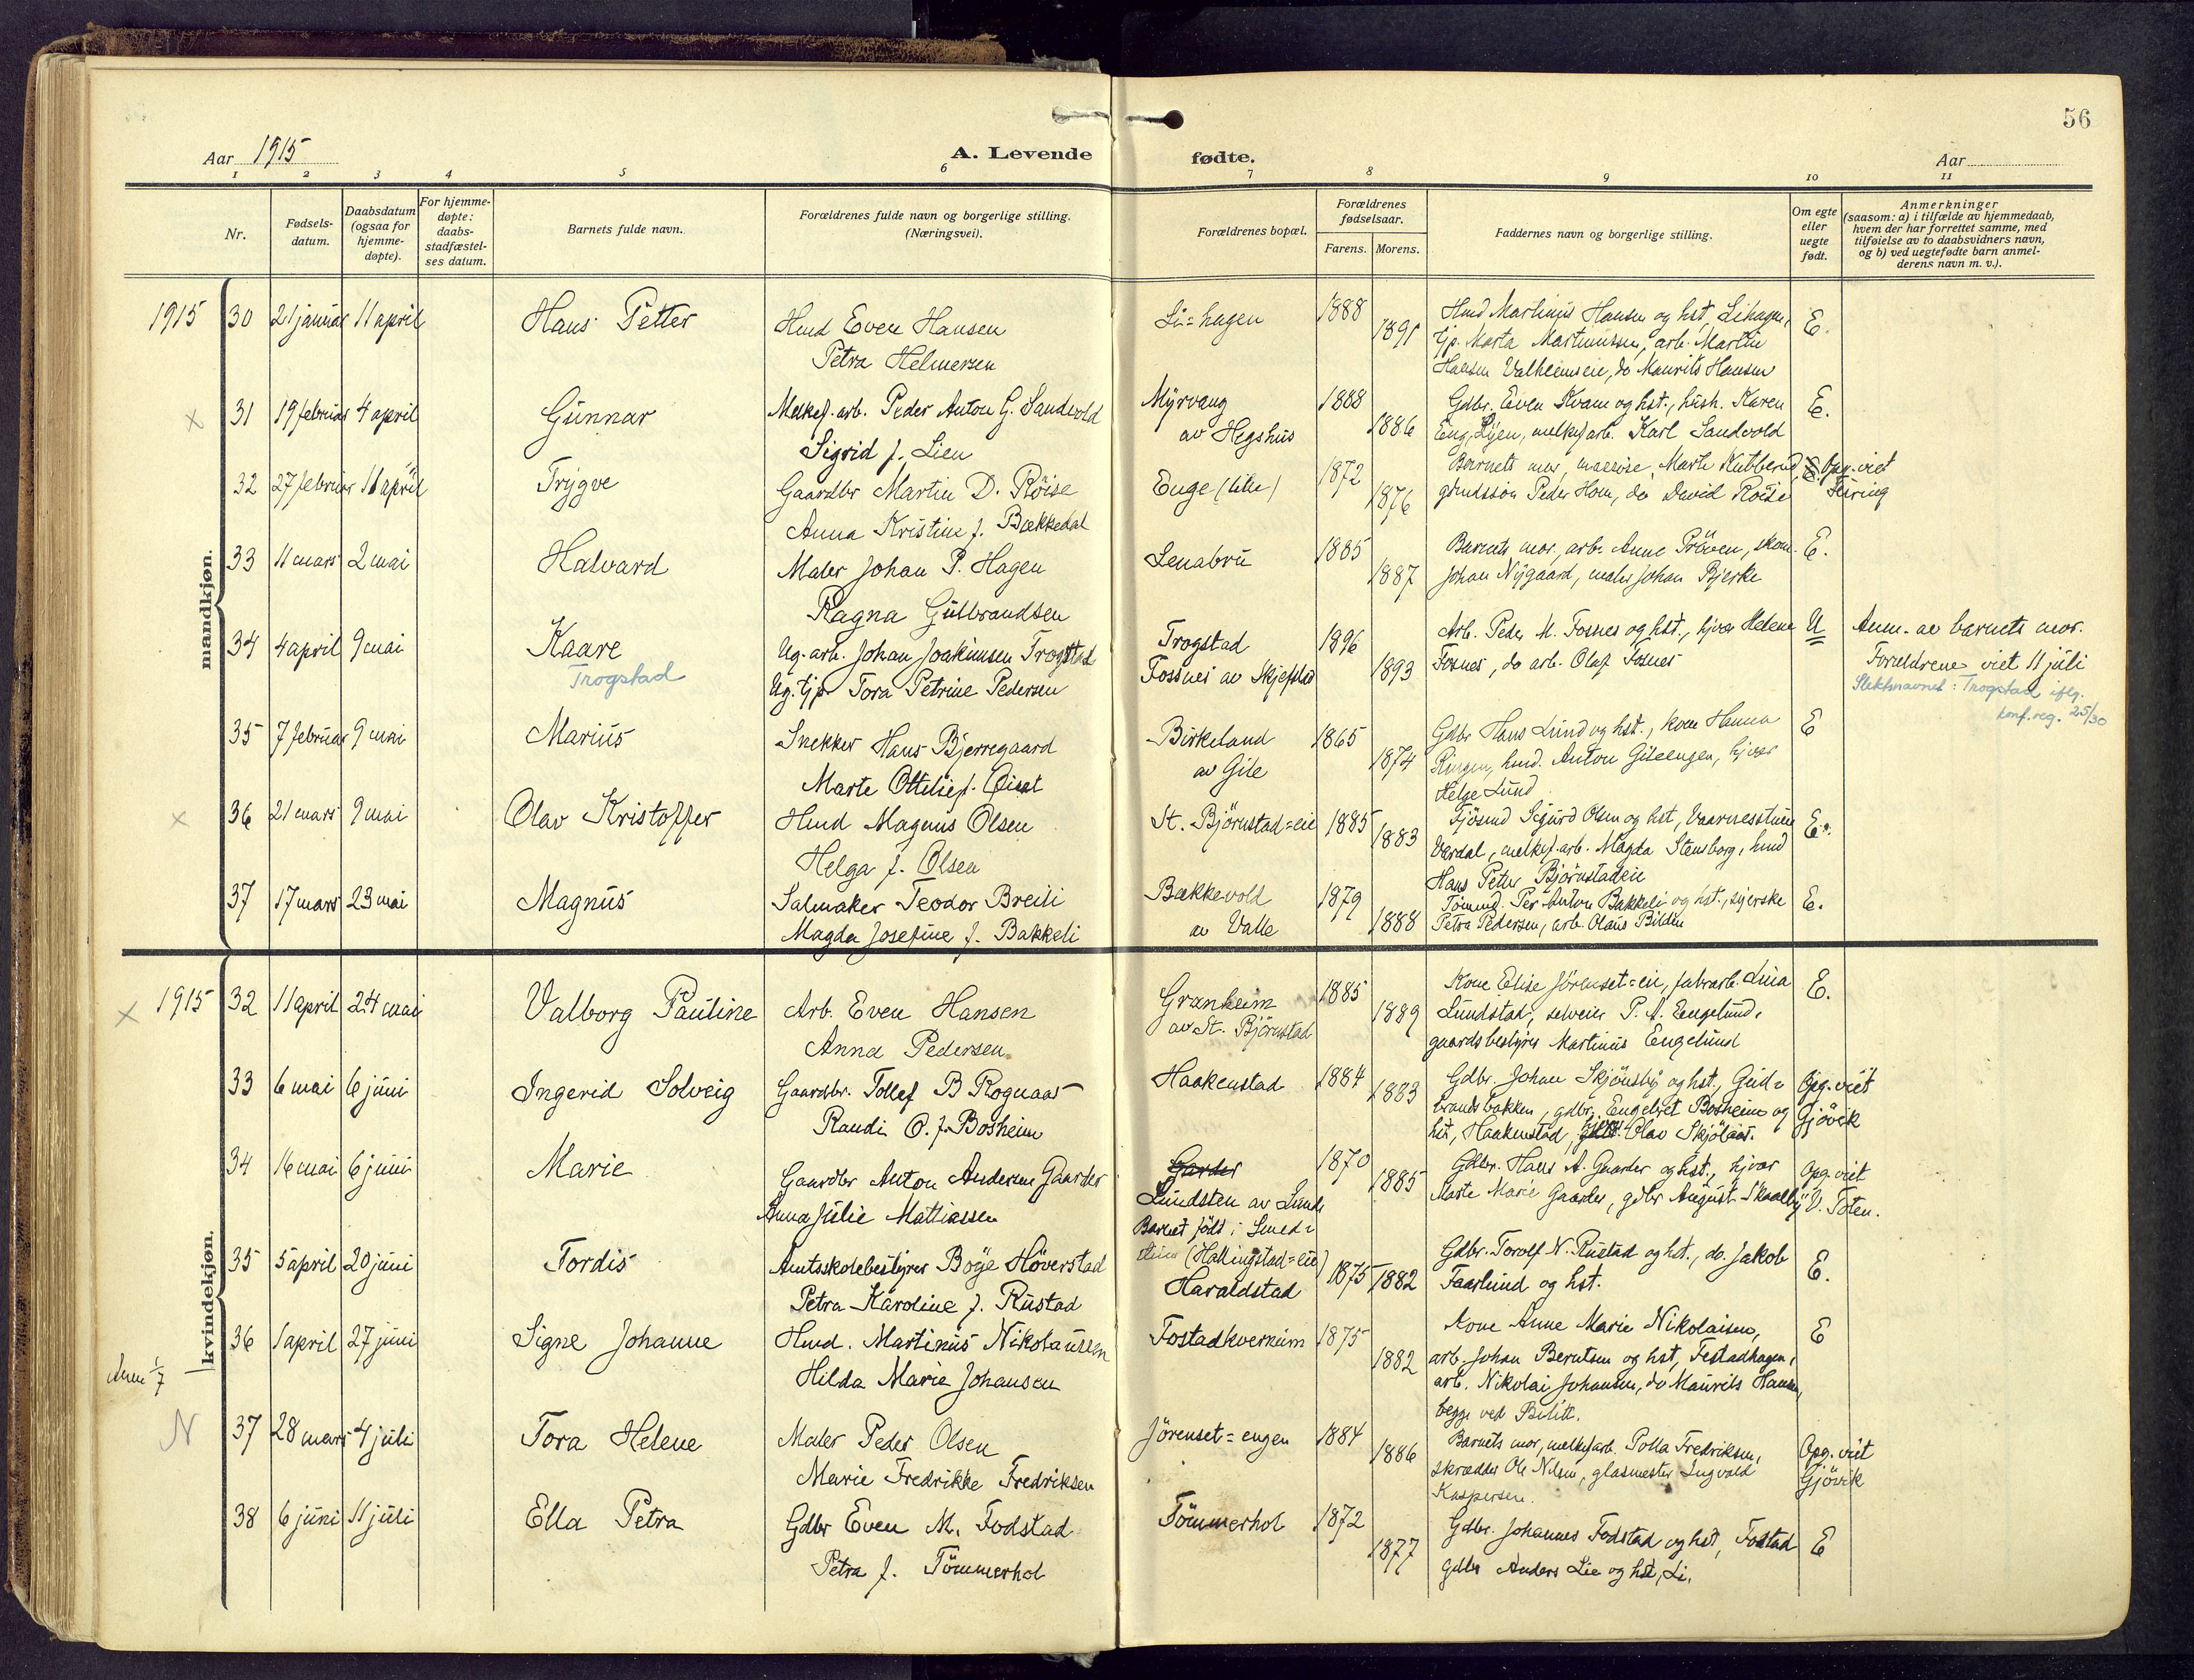 56
Aar 1915
A. Levende fødte.
Aar
1 2 3 4 5 6 7 8 9 10 11
Nr.
Fødsels-
datum.
Daabsdatum
(ogsaa for
hjemme-
døpte).
For hjemme-
døpte:
daabs-
stadfæstel-
ses datum.
Barnets fulde navn.
Forældrenes fulde navn og borgerlige stilling.
(Næringsvei).
Forældrenes bopæl.
Forældrenes
fødselsaar.
Farens. Morens.
Faddernes navn og borgerlige stilling.
Om egte
eller
uegte
født.
Anmerkninger
(saasom: a) i tilfælde av hjemmedaab,
hvem der har forrettet samme, med
tilføielse av to daabsvidners navn,
og b) ved uegtefødte barn anmel-
derens navn m. v.).
mandkjøn.
1915 30 21 januar 11 april Hans Petter
Hmd Even Hansen
Petra Helmersen
Li=hagen 1888 1891
Hmd Martinius Hansen og hst, Lihagen,
tjp. Marta Martinussen, arb. Martin
Hansen Valheimseie, do Maurits Hansen
E.
x 31 19 februar 4 april Gunnar
Melkef. arb. Peder Anton G. Sandvold
Sigrid f. Lien
Myrvang
av Hegshus
1888 1886
Gdbr. Even Kvam og hst., hush. Karen
Eng, Lijen, melkef arb. Karl Sandvold
E.
32 27 februar 11 april Trygve
Gaardbr Martin D. Röise
Anna Kristine f. Bækkedal
Enge (lille) 1872 1876
Barnets mor, Marte Kubberud,
grundssön Peder Hom, do David Roise
E. Opg. viet
Feiring
33 11 mars 2 mai Halvard
Maler Johan P. Hagen
Ragna Gulbrandsen
Lenabru 1885 1887
Barnets mor, arb. Anne Pröven, skom.
Johan Nygaard, maler Johan Bjerke
E.
34 4 april 9 mai Kaare
Trogstad
Ug. arb. Johan Joakimsen Trogstad
Ug. tjp Tora Petrine Pedersen
Trogstad
Fossnes av Skjefstad
1896 1893
Arb. Peder M. Fosnes og hst., hjvær Helene
Fosnes, do arb. Olaf Fosnes
U
Anm. av barnets mor.
Foreldrene viet 11 juli
Slektsnavnet: Trogstad iflg.
konf. reg. 25/30
35 7 februar 9 mai Marius
Snekker Hans Bjerregaard
Marte Ottilie f.
Birkeland
av Gile
1865 1874
Gdbr Hans Lund og hst., kone Hanna
Ringen, hmd. Anton Gileengen, hjvær
Helge Lund
E
x 36 21 mars 9 mai Olav Kristoffer
Hmd Magnus Olsen
Helga f. Olsen
St. Björnstad=eie 1885 1883
Fjösmd Sigurd Olsen og hst, Vaarnesstuen
Vardal, melkef. arb. Magda Stensborg, hmd
Hans Peter Björnstadeie
E.
37 17 mars 23 mai Magnus
Salmaker Teodor Breili
Magda Josefine f. Bakkeli
Bækkevold
av Valle
1879 1888
Tömmd. Per Anton Bakkeli og hst., syerske
Petra Pedersen, arb. Olaus Bilden
E.
kvindekjøn.
x 1915 32 11 april 24 mai Valborg Pauline
Arb. Even Hansen
Anna Pedersen
Granheim
av St. Björnstad
1885 1889
Kone Elise Jörenset=eie, fabrarb. Lina
Lundstad, selveier P. A. Engelund,
gaardsbestyrer Martinius Engelund
E.
33 6 mai 6 juni Ingerid Solveig
Gaardbr. Tollef B Rognaas
Randi O. f. Bosheim
Haakenstad 1884 1883
Gdbr. Johan Skjönsby og hst., Gud=
brandsbakken, gdbr. Engebret Bosheim og
hst, Haakenstad, Olav Skjölaas.
Opg. viet
Gjövik
34 16 mai 6 juni Marie
Gaardbr Anton Andersen Gaarder
Anna Julie Mattiassen
Garder
Lundsten av Lunde
Barnet födt i Smed=
stuen (Hallingstad=eie)
1870 1885
Gdbr. Hans A. Gaarder og hst., hjvær
Marte Marie Gaarder, gdbr August Skaalby
Opg. viet
V. Toten.
35 5 april 20 juni Tordis
Amtsskolebestyrer Böye Höverstad
Petra Karoline f. Rustad
Haraldstad 1875 1882
Gdbr. Torolf N. Rustad og hst., do. Jakob
Faarlund og hst.
E.
36 1 april 27 juni Signe Johanne
Hmd. Martinus Nikolaussen
Hilda Marie Johansen
Fostadkvernum 1875 1882
Kone Anne Marie Nikolaisen,
arb. Johan Berntsen og hst, Festadhagen,
arb. Nikolai Johansen, do Maurits Hansen,
begge ved Bilitt.
E
Anm 1/7
N 37 28 mars 4 juli Tora Helene
Maler Peder Olsen
Marie Fredrikke Fredriksen
Jörenset=engen 1884 1886
Barnets mor, melkefarb. Polla Fredriksen,
skrædder Ole Nilsen, glasmester Ingvald
Kaspersen.
Opg. viet
Gjövik
38 6 juni 11 juli Ella Petra
Gdbr Even M. Fodstad
Petra f. Tömmerhol
Tömmerhol 1872 1877
Gdbr. Johannes Fodstad og hst, Fodstad
Gdbr Anders Lie og hst, Li.
E